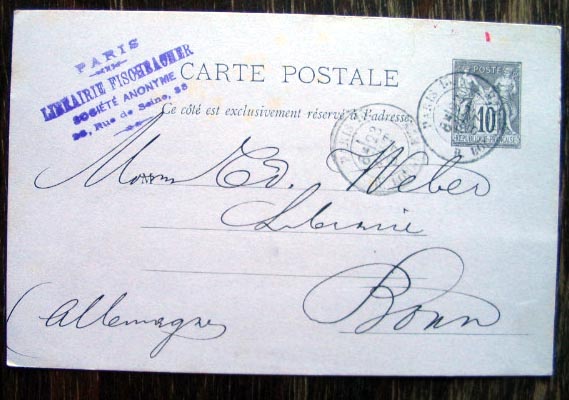 PARIS
LIBRAIRIE FISCHBACHER
SOCIÉTÉ ANONYME
33, Rue de Seine, 33
CARTE POSTALE
Ce côté est exclusivement réservé à l'adresse.
POSTE
10
REPUBLIQUE FRANÇAISE
PARIS
PARIS
Ed. Weber
Librairie
Bonn
(Allemagne)